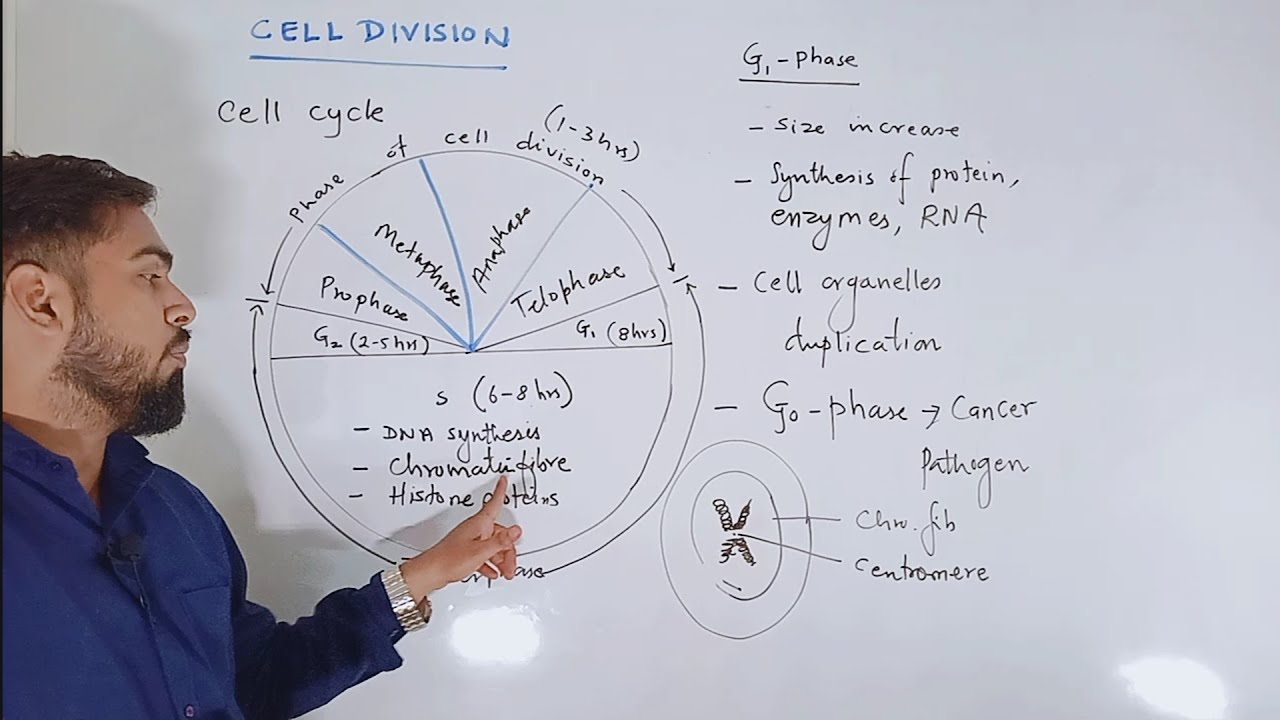 CELL DIVISION
Cell cycle
Phase of cell division
(1-3 hrs)
Prophase
Metaphase
Anaphase
Telophase
G2 (2-5 hrs)
G1 (8hrs)
S (6-8 hrs)
- DNA synthesis
- Chromatin fibre
- Histone proteins
G1-Phase
- Size increase
- Synthesis of protein,
enzymes, RNA
- Cell organelles
duplication
- G0-phase → Cancer
Pathogen
Chr. fib
Centromere